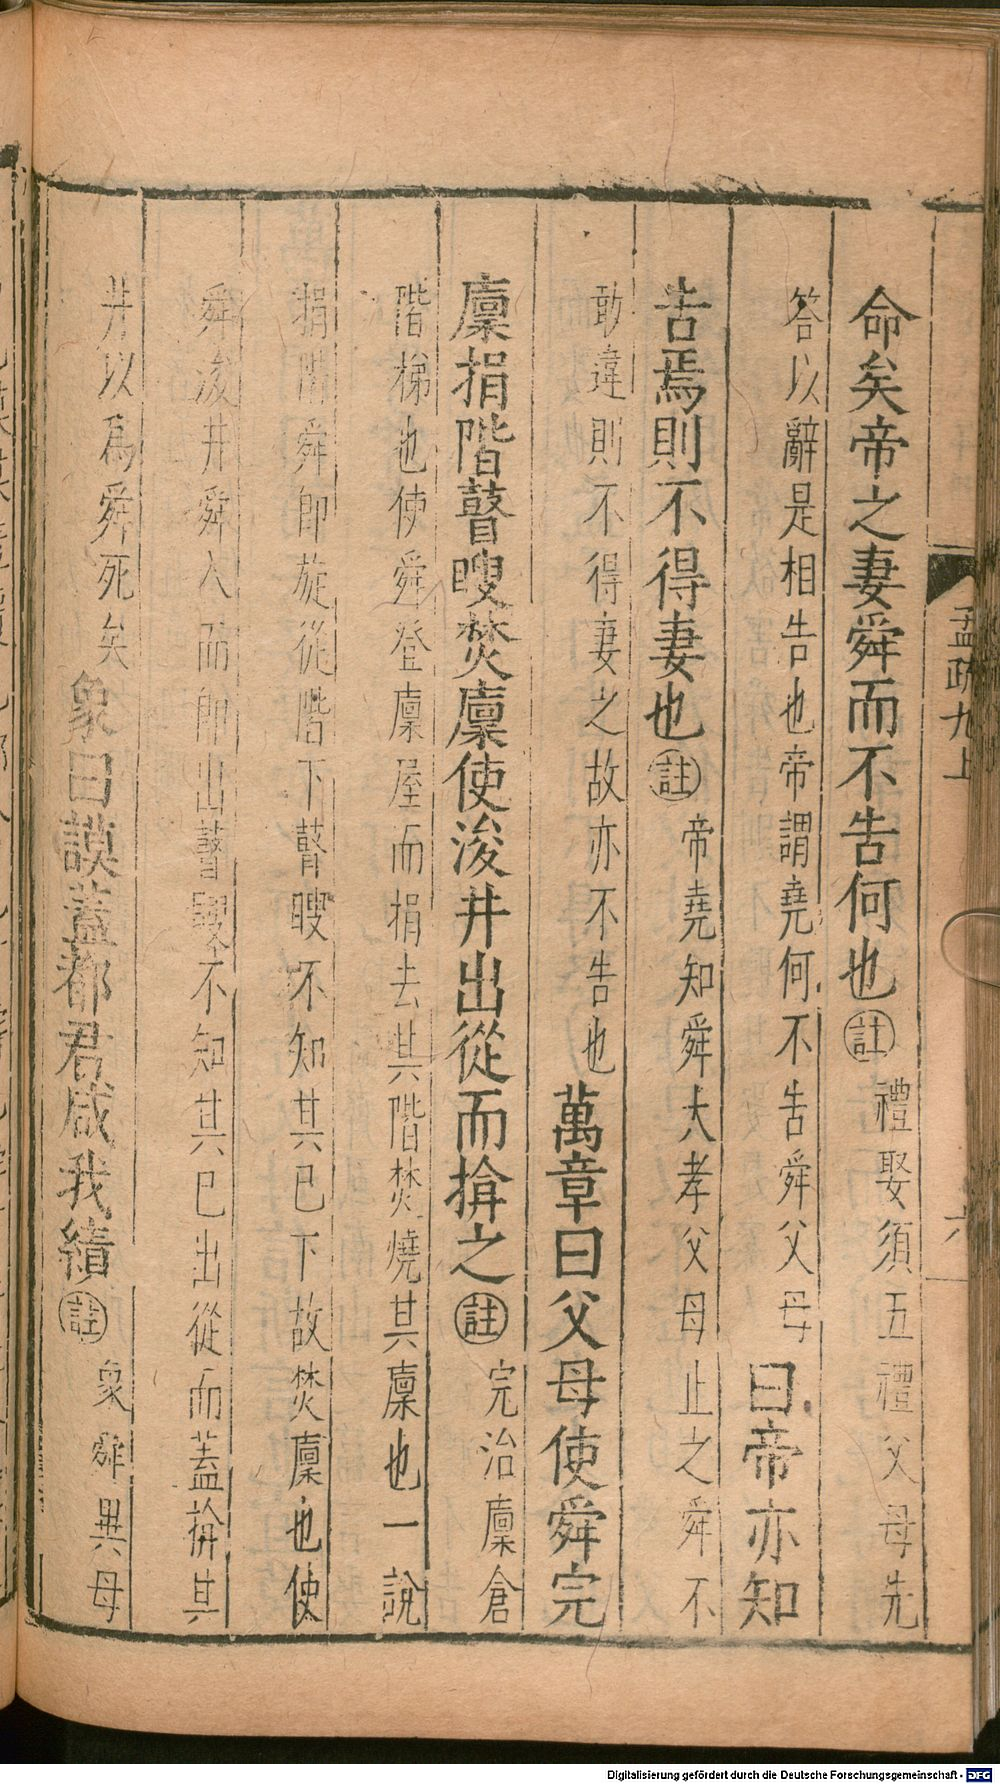 孟疏九上
六
命矣帝之妻舜而不告何也註禮娶須五禮父母先
答以辭是相告也帝謂堯何不告舜父母曰帝亦知
告焉則不得妻也註帝堯知舜大孝父母止之舜不
敢違則不得妻之故亦不告也萬章曰父母使舜完
廩捐階瞽瞍焚廩使浚井出從而揜之註完治廩倉
階梯也使舜登廩屋而捐去其階焚燒其廩也一說
捐階舜即旋從階下瞽瞍不知其已下故焚廩也使
舜浚井舜入而即出瞽瞍不知其已出從而蓋揜其
井以爲舜死矣象曰謨蓋都君咸我績註象舜異母
Digitalisierung gefördert durch die Deutsche Forschungsgemeinschaft - DFG